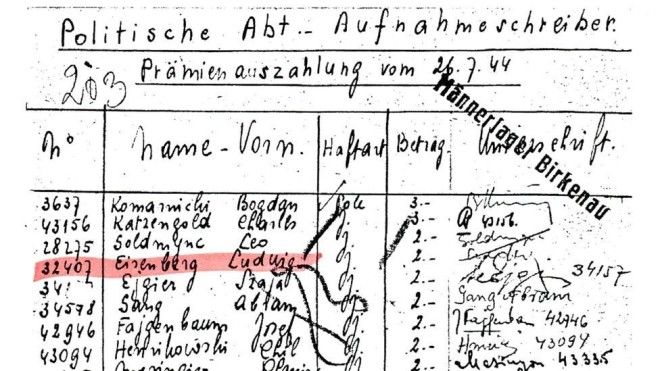 Politische Abt.- Aufnahmeschreiber.
203 Prämienauszahlung vom 26.7.44
Männerlager Birkenau
No Name - Vorn. Haftart Betrag. Unterschrift.
3637 Komarnicki Bogdan Pole 3.-
43156 Katzengold Charles J. 3.- 43156.
28275 Soldmync Leo J. 2.-
32407 Eisenberg Ludwig J. 2.-
Ejgier Szaja J. 2.- 34157
34578 Sang Abram J. 2.- Sang Abram
42946 Fajgenbaum Josef J. 2.- 42946
43094 Henrikowski J. 2.- 43094
2.- 43335